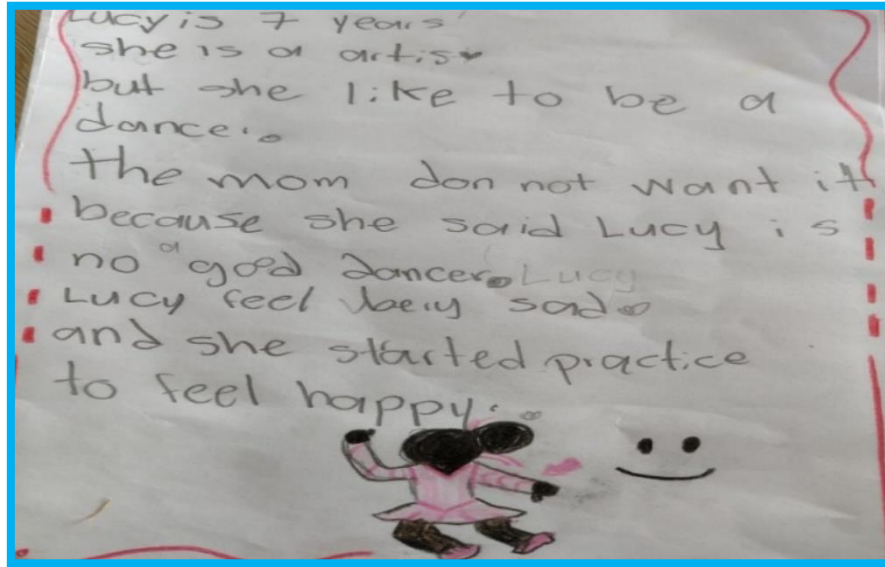 Lucy is 7 years
she is a artist
but she like to be a
dance.
the mom don not want it
because she said Lucy is
no a good dancer. Lucy
Lucy feel very sad.
and she started practice
to feel happy.